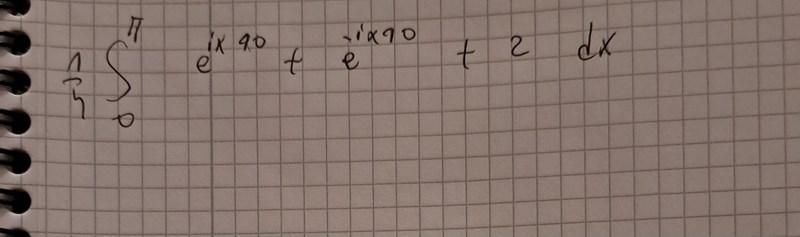 1/4 ∫₀^π e^{ix90} + e^{-ix90} + 2 dx